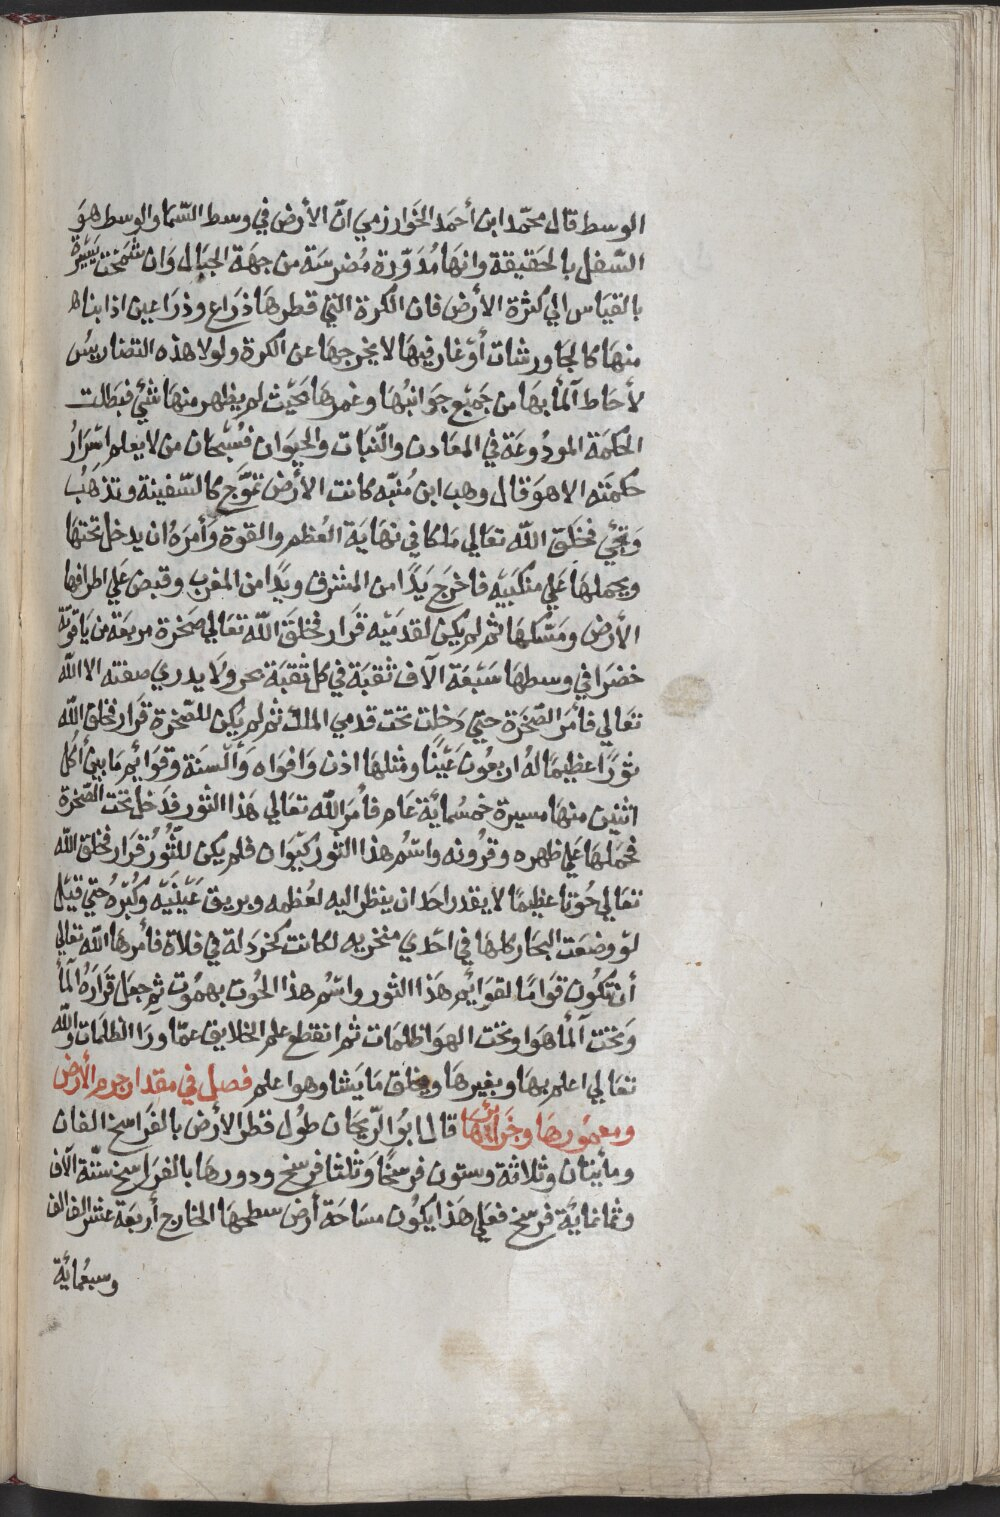 الوسط قال محمّد ابن أحمَد الخَوارزمي انّ الأرضَ في وسط السّمَا والوسط هوَ
السّفل بالحَقيقة وانهَا مُدَوّرة مُضرسَة من جهَة الجبَال وَان شمخت يَسيرَة
بالقيَاس الي كثرة الأرضَ فان الكرة التي قطرهَا ذرَاع وذرَاعين اذا بناها
منهَا كالجاورشات أوْ غار فيهَا لا يخرجهَا عن الكرة ولولا هذه التضاريسُ
لأحَاط ألمأ بهَا من جَميْع جوَانبُهَا وغمرهَا بحَيْث لم يظهر منهَا شئي فبَطلت
الحكمَة المودُوعَة في المعَادن والنّبَات والحيوَان فسُبْحَان من لا يعلم اسْرَارُ
حكمَته الا هوَ قال وهب ابن مُنبّه كانت الأرضَ تموَّج كالسّفينة وتذهبُ
وَتجيْ فخَلق اللّه تعَالي ملكا في نهَايَة العُظم والقوة وَأمرَهُ ان يدخل تحتهَا
ويحملهَا عَلي منكبَيْه فاخرَج يَدًا من المشرق ويَدًا من المغرب وقبض عَلي اطرافها
الأرض ومَسّكهَا ثم لم يكن لقدمَيْه قَرار فخلقَ اللّه تعَالي صَخرة مربعَة من يَاقوتة
خضرَا في وسطهَا سَبْعَة الآف ثقبَة في كل ثقبَة بحر وَلا يدري صفته الا اللّه
تعَالي فأمَر الصّخرَة حتي دَخلت تحت قدمي الملك ثم لم يكن للصّخرة قَرار فخلق اللّه
ثورًا عظيمًا لهُ اربعُون عَيْنًا ومثلهَا اذن وَافوَاه وَألسنَة وقوَائم مَا بين أكل
اثنين منهَا مسيرة خمسُمايَة عَام فأمَر اللّه تعَالي هَذا الثور فدَخل تحت الصّخرة
فحمَلهَا عَلي ظهره وقرُونه واسْم هذا الثورُ كيُوَان فلم يكن للثّورُ قرَار فخلق اللّه
تعَالي حُوتا عَظيمًا لا يقدر احَد ان ينظر اليه لعُظمه وبريق عَيْنيَه وكُبْرهُ حتي قيْل
لوْ وضعَت البحَار كلهَا في احْدي منخريه لكانت كخردَلة في فلاة فأمرهَا اللّه تعَالي
أن تكُون قوَامًا لقوَائم هَذا الثور واسْم هذا الحُوت بهمُوت ثم جعَل قَرارَهُ ألمأ
وَتحت ألمأ هوَا وتحت الهوَا ظلمَات ثم انقطع علم الخلايق عمّا ورَا الظلمَات واللّه
تعَالي اعلم بهَا وبغيرهَا ويخلق مَا يَشا وهو اعلم فصل في مقدار جرم الأرض
ومعمُورهَا وخَرَائبهَا قال ابُو الرّيحَان طوُل قطر الأرضَ بالفَراسخ الفان
ومأيتان وثلاثة وستون فرسخًا وَثلثا فرسخ ودورهَا بالفرَاسخ ستّة الآف
وثمانمايَة فرسخ فعَلي هَذا يكُون مسَاحَة أرض سطحهَا الخارج أربعَة عشر الف الف
وسبعُمائَة